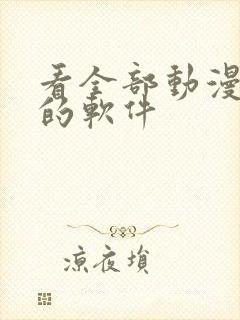 看全部動漫
的軟件
涼夜塤